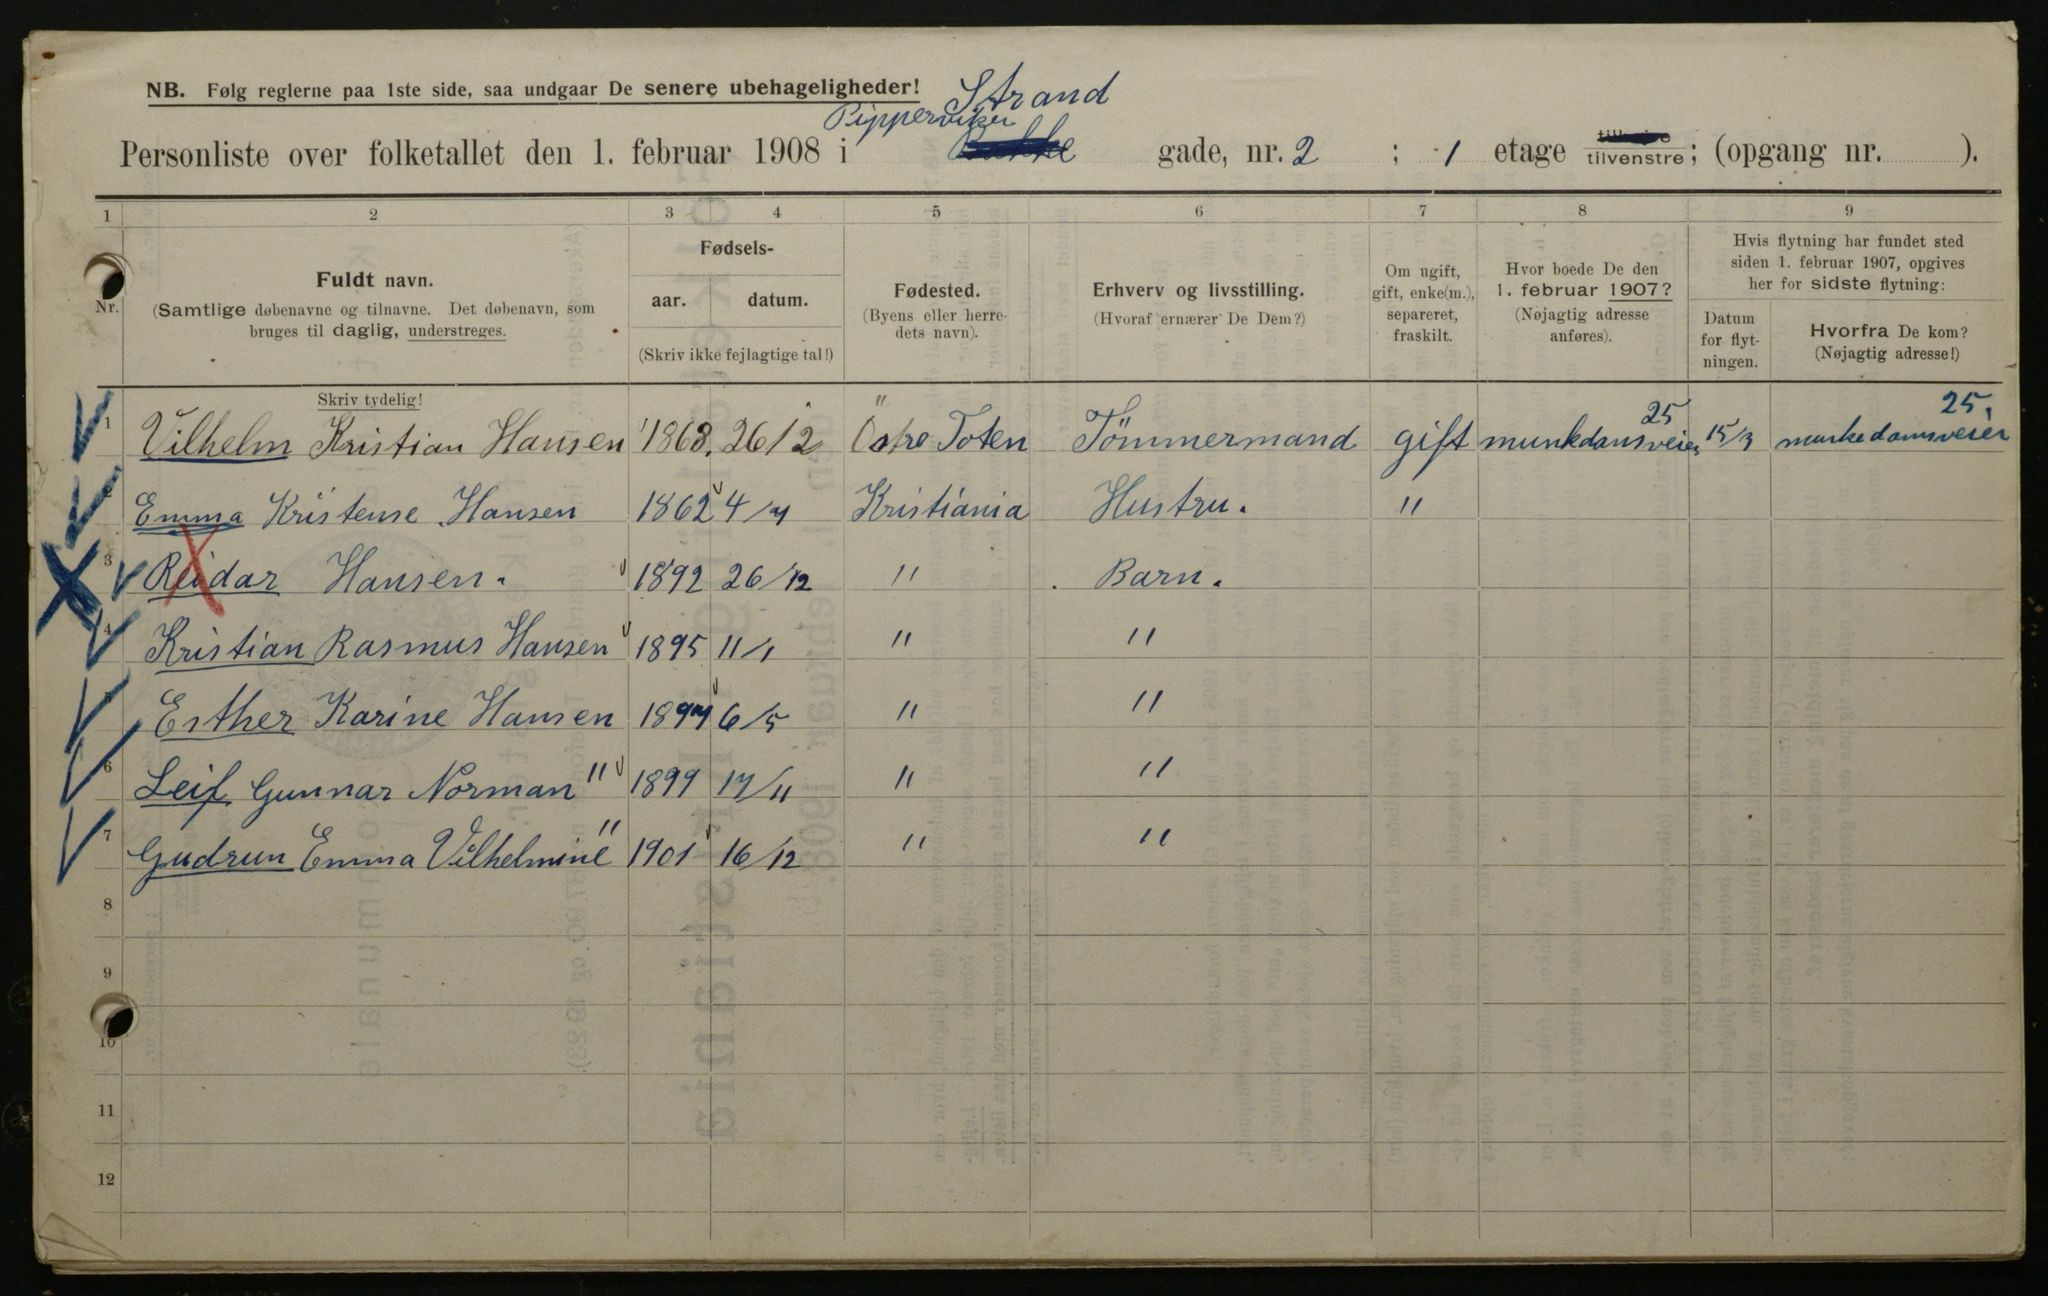 NB. Følg reglerne paa 1ste side, saa undgaar De senere ubehageligheder!
Strand
Pipperviker
Personliste over folketallet den 1. februar 1908 i gade, nr. 2 ; 1 etage tilvenstre; (opgang nr. ).
1 2 3 4 5 6 7 8 9
Nr.
Fuldt navn.
(Samtlige døbenavne og tilnavne. Det døbenavn, som
bruges til daglig, understreges.
Skriv tydelig!
Fødsels-
aar. datum.
(Skriv ikke fejlagtige tal!)
Fødested.
(Byens eller herre-
dets navn).
Erhverv og livsstilling.
(Hvoraf ernærer De Dem?)
Om ugift,
gift, enke(m.),
separeret,
fraskilt.
Hvor boede De den
1. februar 1907?
(Nøjagtig adresse
anføres).
Hvis flytning har fundet sted
siden 1. februar 1907, opgives
her for sidste flytning:
Datum
for flyt-
ningen.
Hvorfra De kom?
(Nøjagtig adresse!)
25 25,
1 Vilhelm Kristian Hansen 1868. 26/2 Östre Toten Tömmermand gift munkdansveien 15/3 munkedamsveien
2 Emma Kristense Hansen 1862 4/7 Kristiania Hustru. "
3 Reidar Hansen. 1892 26/12 " Barn.
4 Kristian Rasmus Hansen 1895 11/1 " "
5 Esther Karine Hansen 1897 6/5 " "
6 Leif Gunnar Norman " 1899 17/11 " "
7 Gudrun Emma Vilhelmine " 1901 16/12 " "
8
9
10
11
12